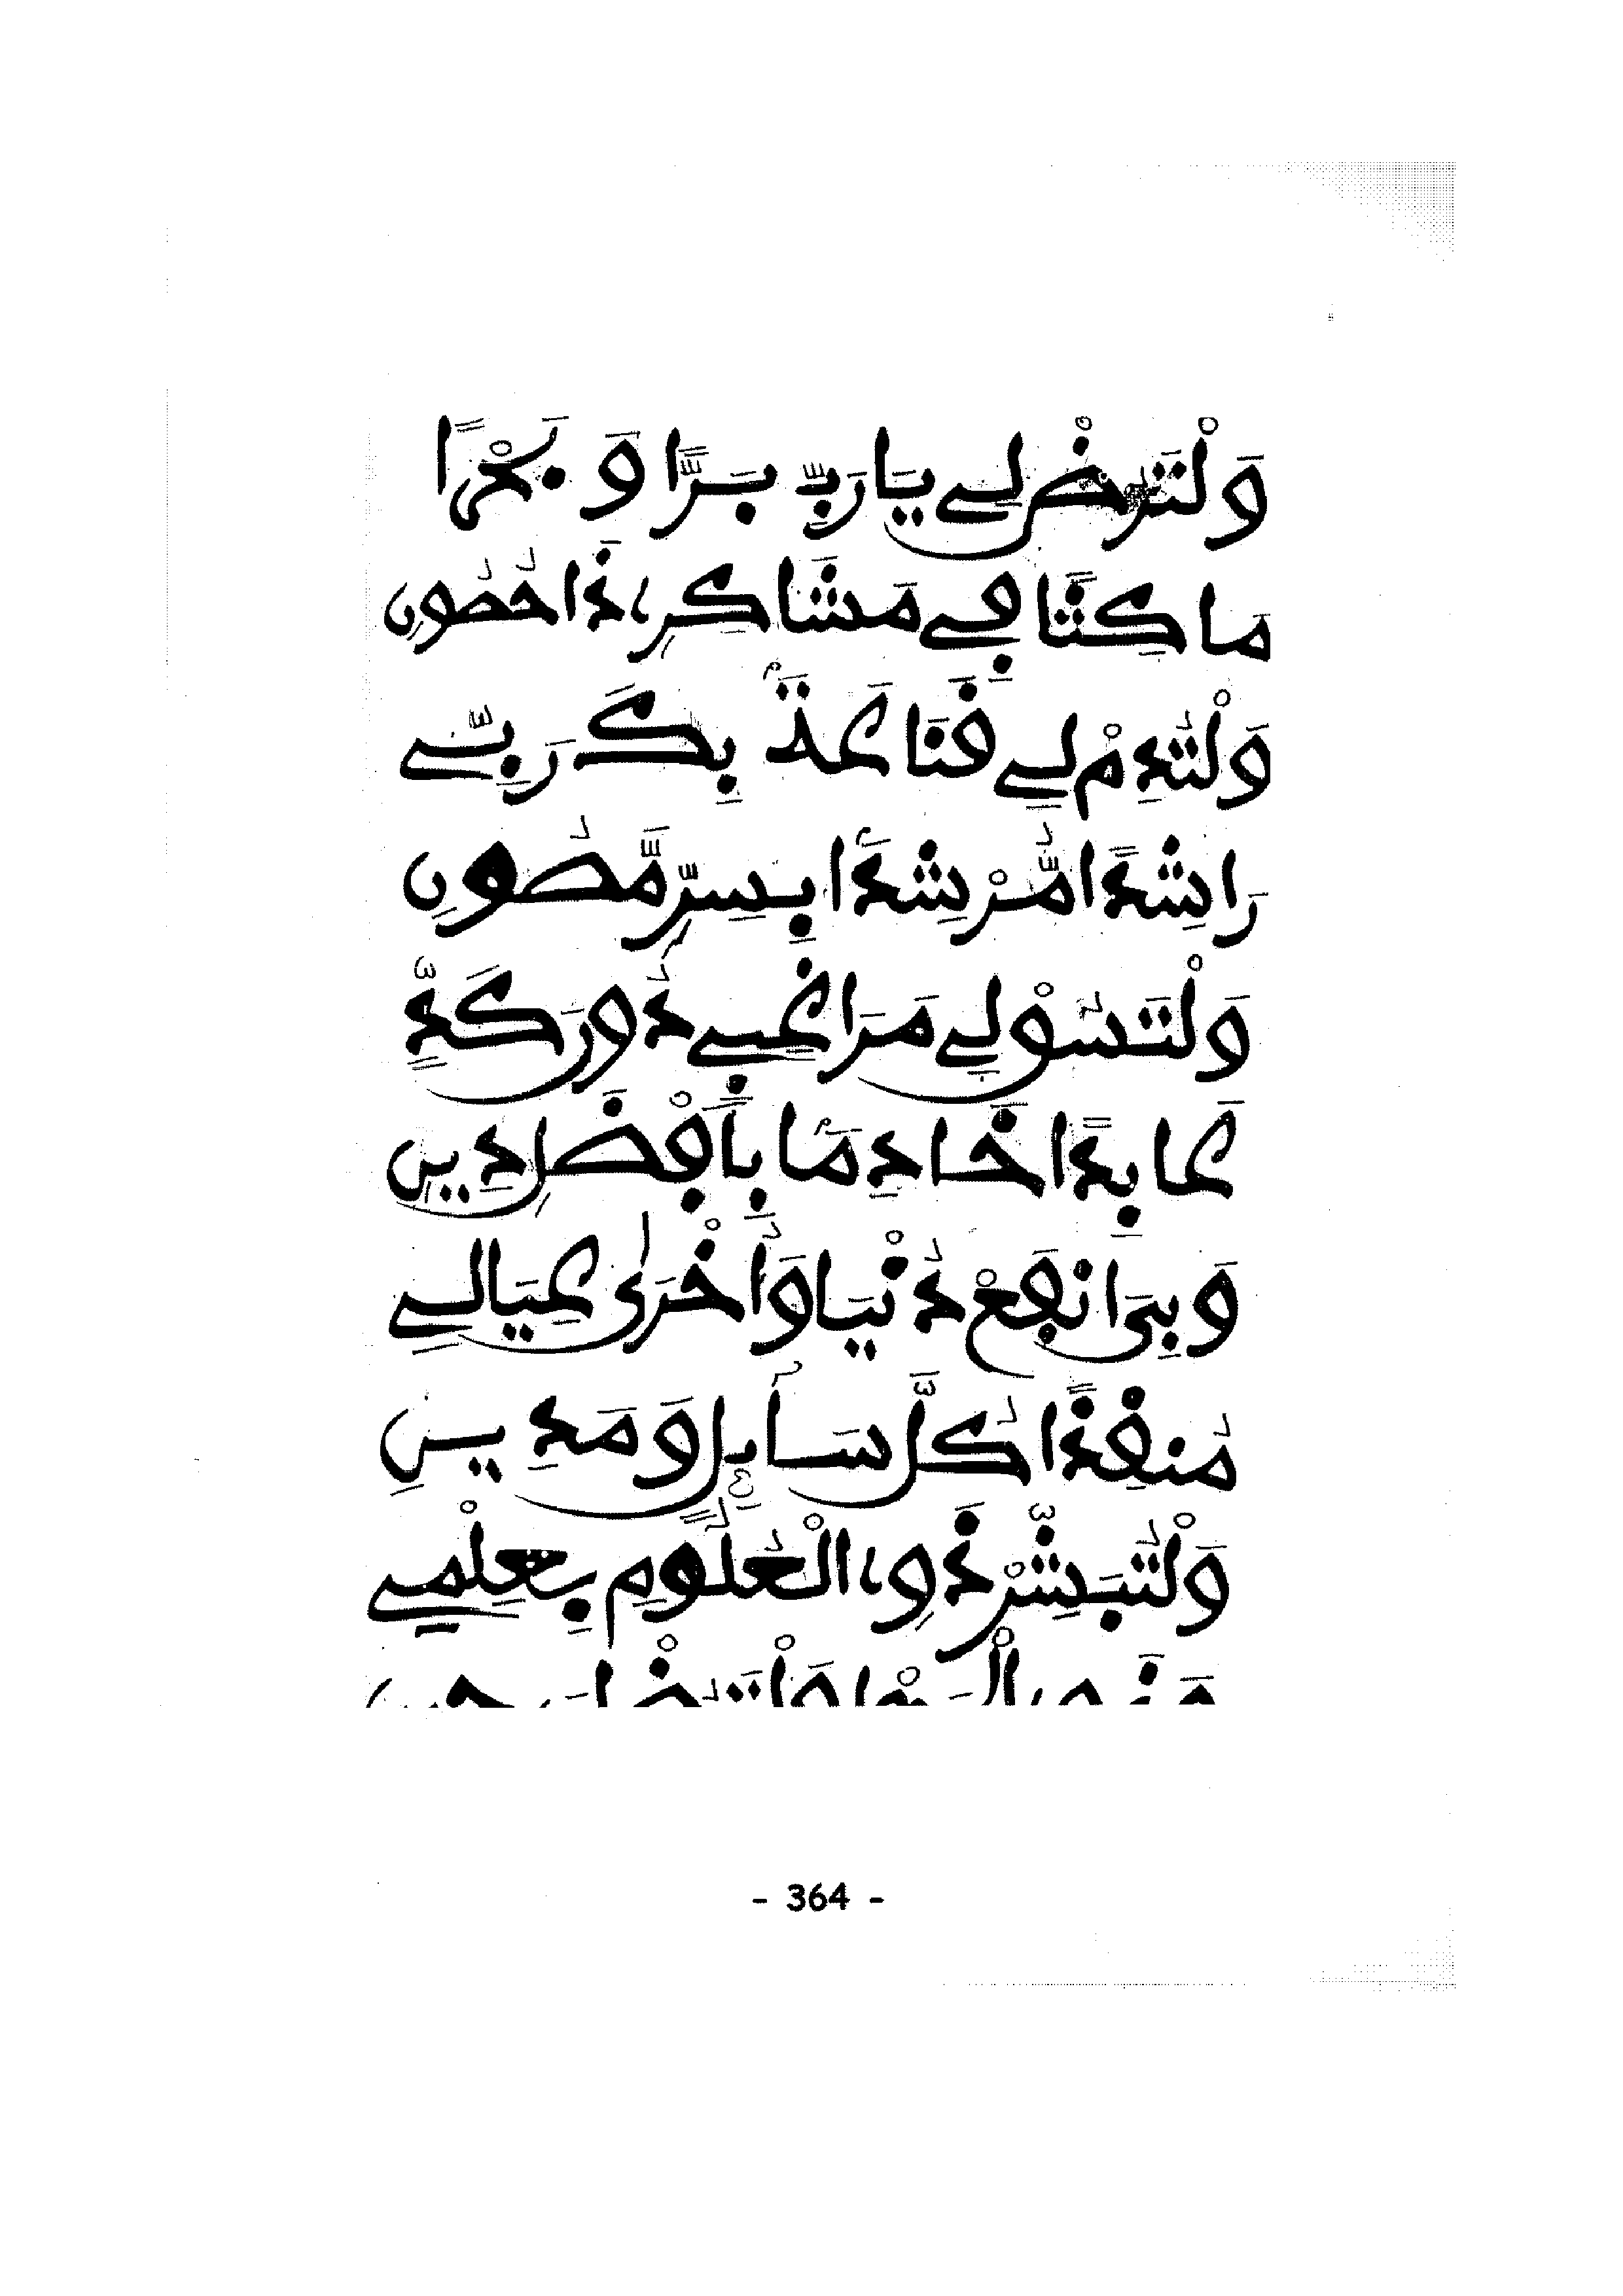 وَلْتَرْضَ لِي يَا رَبِّ بَرًّا وَبَحْرًا
مَاكِثًا فِي مَشَاكِرٍ ذَا حُصُونِ
وَلْتُدِمْ لِي قَنَاعَةً بِكَ رَبِّي
رَاشِدًا مُّرْشِدًا بِسِرٍّ مَّصُونِ
وَلْتَسُقْ لِي مَرَاغِبِي دُورَ كَدٍّ
عَابِدًا خَادِمًا بِأَفْضَلِ دِينِ
وَبِيَ انْفَعْ دُنْيَا وَأُخْرَى عِيَالِي
مُنفِذًا كُلَّ سَآئِلٍ وَمَدِينِ
وَلْتُبَشِّرْ ذَوِي الْعُلُومِ بِعِلْمِي
- 364 -